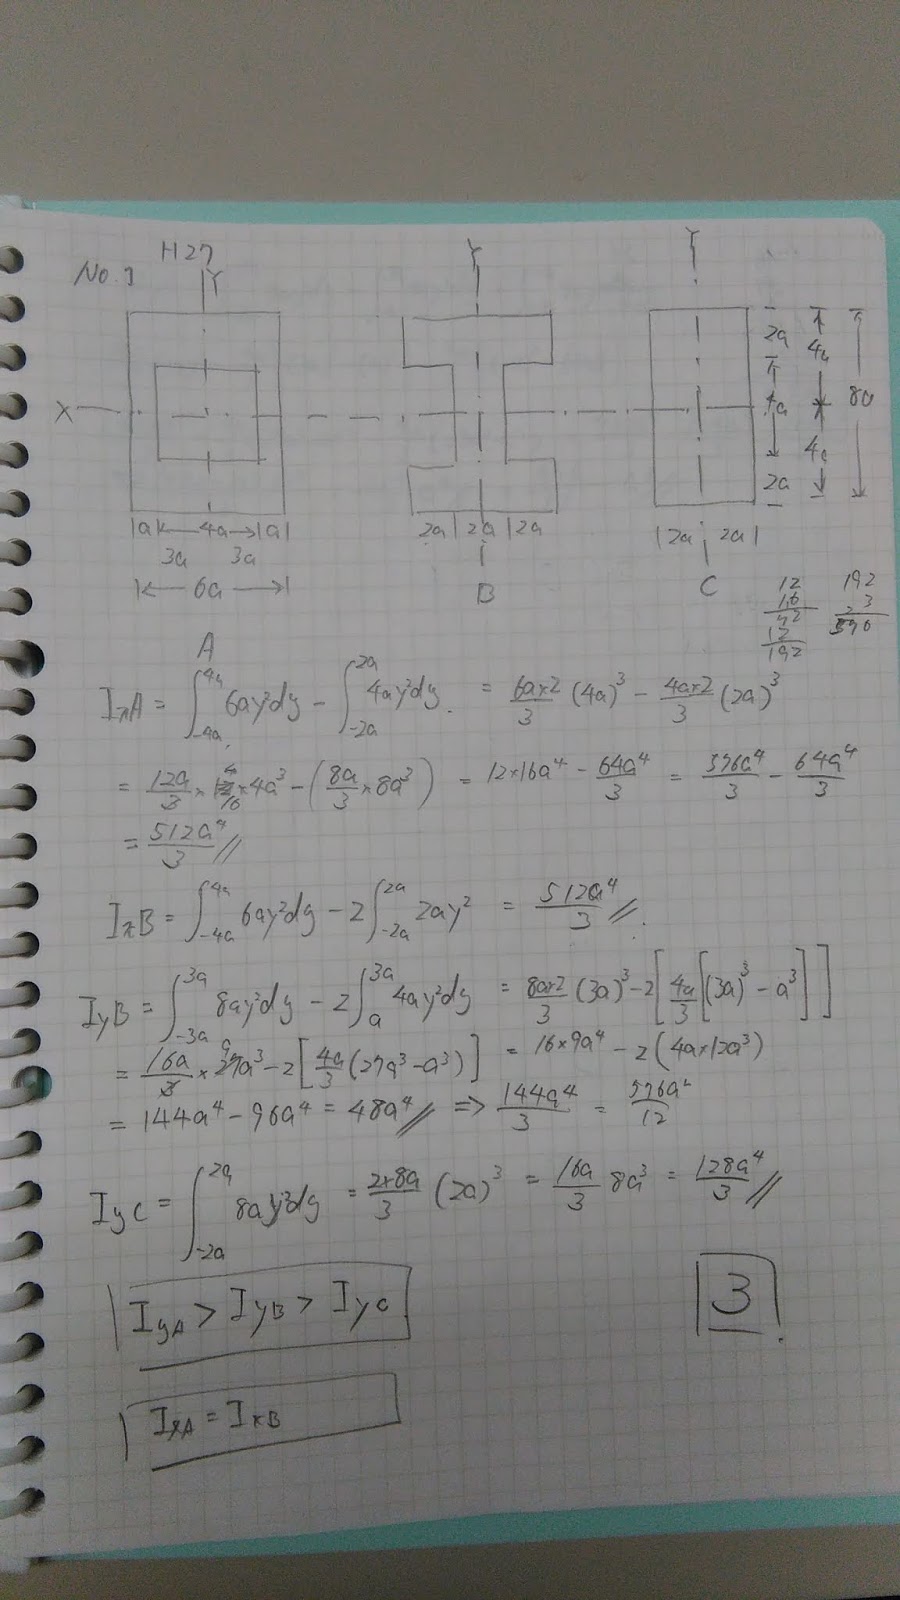 H27
No. 1
Y
Y
Y
X
2a
4a
8a
4a
2a
|a|← 4a →|a|
3a 3a
|← 6a →|
2a|2a|2a
|2a 2a|
A
B
C
12
16
72
12
192
192
3
576
IxA = ∫_{-4a}^{4a} 6ay²dy - ∫_{-2a}^{2a} 4ay²dy = 6a×2/3 (4a)³ - 4a×2/3 (2a)³
= 12a/3 × 16 × 4a³ - (8a/3 × 8a³) = 12×16a⁴ - 64a⁴/3 = 576a⁴/3 - 64a⁴/3
= 512a⁴/3
IxB = ∫_{-4a}^{4a} 6ay²dy - 2∫_{-2a}^{2a} 2ay² = 512a⁴/3
IyB = ∫_{-3a}^{3a} 8ay²dy - 2∫_{a}^{3a} 4ay²dy = 8a×2/3 (3a)³ - 2[4a/3 [(3a)³ - a³]]
= 16a/3 × 27a³ - 2[4a/3 (27a³ - a³)] = 16×9a⁴ - 2(4a×12a³)
= 144a⁴ - 96a⁴ = 48a⁴ ⇒ 144a⁴/3 = 576a⁴/12
IyC = ∫_{-2a}^{2a} 8ay²dy = 2×8a/3 (2a)³ = 16a/3 8a³ = 128a⁴/3
IyA > IyB > IyC
3
IxA = IxB